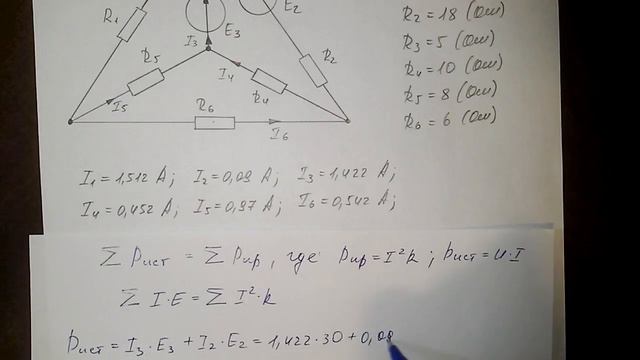 R₁
E₃
E₂
I₃
R₅
I₄
R₂
R₄
I₅
R₆
I₆
R₂ = 18 (Ом)
R₃ = 5 (Ом)
R₄ = 10 (Ом)
R₅ = 8 (Ом)
R₆ = 6 (Ом)
I₁ = 1,512 А; I₂ = 0,09 А; I₃ = 1,422 А;
I₄ = 0,452 А; I₅ = 0,97 А; I₆ = 0,542 А;
∑ Pист = ∑ Pпр, где Pпр = I²R; Pист = U·I
∑ I·E = ∑ I²·R
Pист = I₃·E₃ + I₂·E₂ = 1,422·30 + 0,09